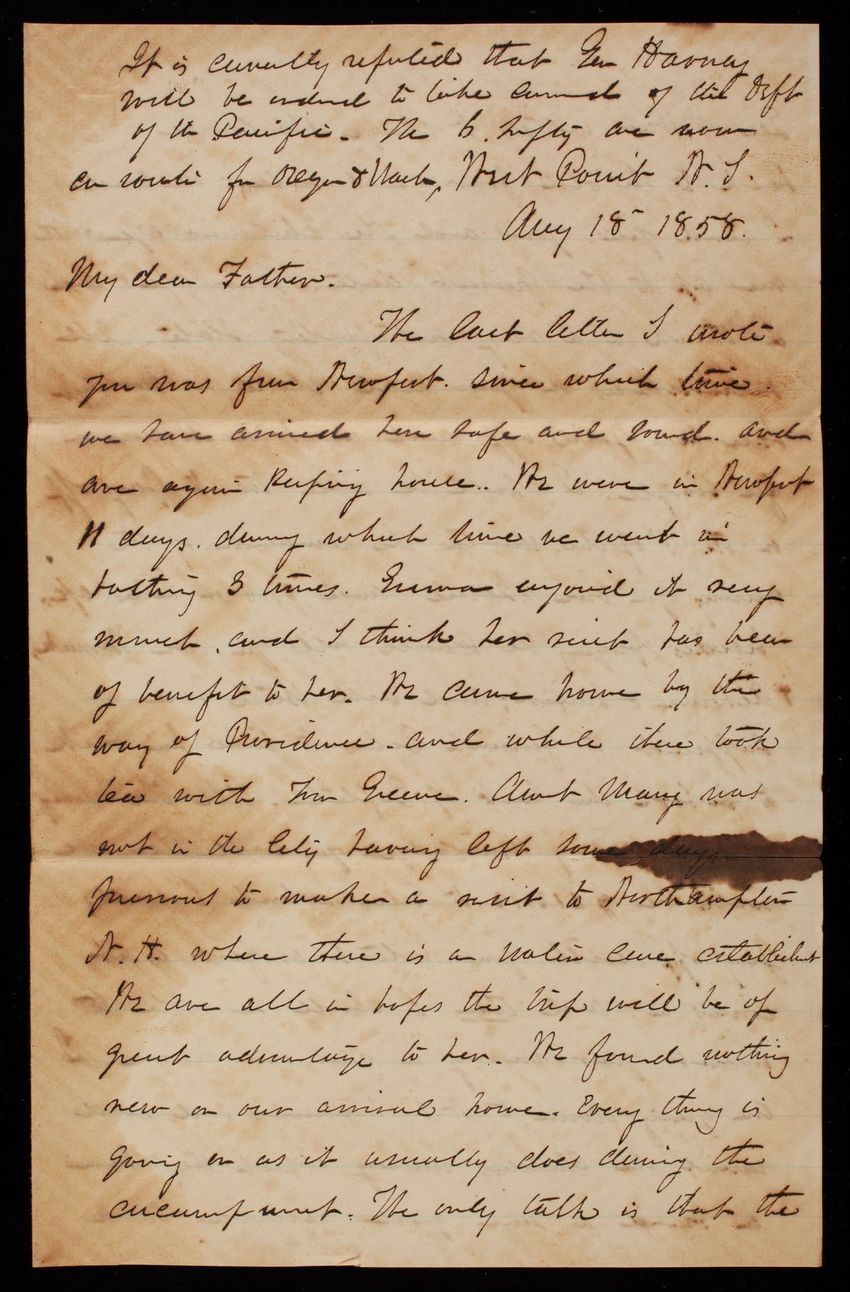 It is currently reported that Gen Harney
will be ordered to take command of the Dept
of the Pacific. The 6. Infty are now
en route for Oregon & Wash, West Point N. Y.
Aug 18 1858.
My dear Father.
The last letter I wrote
you was from Newport. since which time
we have arrived here safe and sound. and
are again keeping house.. We were in Newport
11 days. during which time we went in
bathing 3 times. Emma enjoyed it very
much, and I think her visit has been
of benefit to her. We came home by the
way of Providence. and while there took
tea with Greene. Aunt Mary was
not in the City having left some days
previous to make a visit to Northampton
N. H. where there is a water cure establishmt
We are all in hopes the trip will be of
great advantage to her. We found nothing
new on our arrival home. Every thing is
going on as it usually does during the
encampment. The only talk is that the